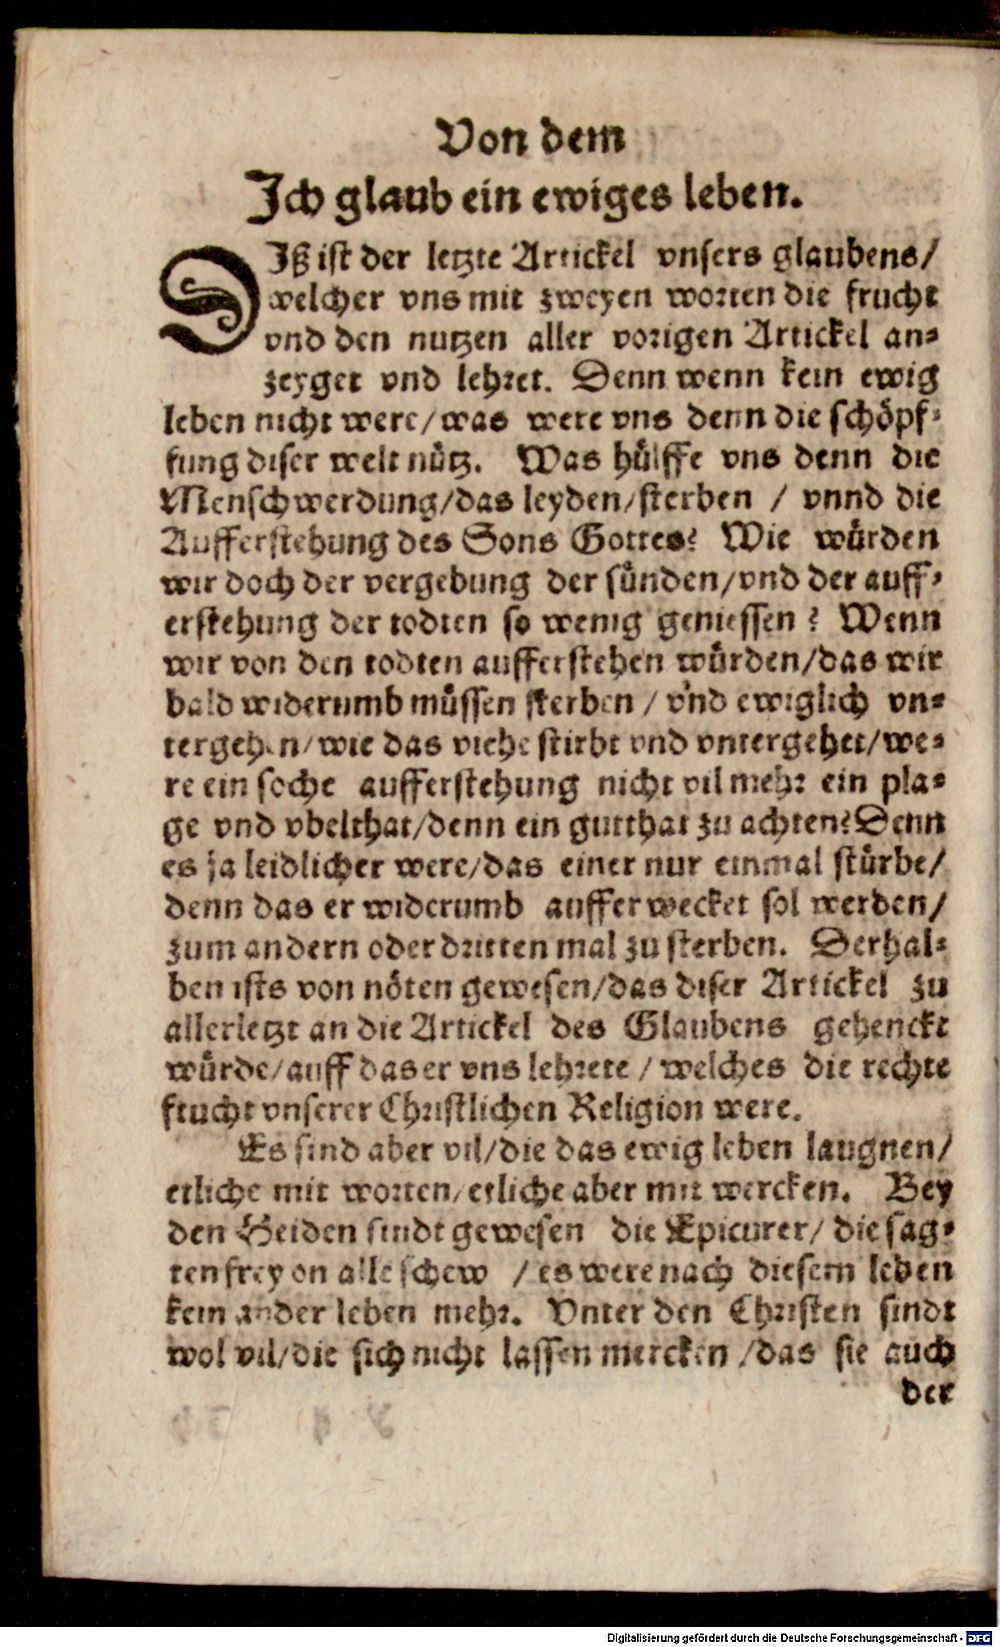 Von dem
Ich glaub ein ewiges leben.
DIß ist der letzte Artickel vnsers glaubens/
welcher vns mit zweyen worten die frucht
vnd den nutzen aller vorigen Artickel an⸗
zeyget vnd lehret. Denn wenn kein ewig
leben nicht were/was were vns denn die schöpf⸗
fung diser welt nütz. Was hülffe vns denn die
Menschwerdung/das leyden/sterben / vnnd die
Aufferstehung des Sons Gottes? Wie würden
wir doch der vergebung der sünden/vnd der auff⸗
erstehung der todten so wenig geniessen? Wenn
wir von den todten aufferstehen würden/das wir
bald widerumb müssen sterben / vnd ewiglich vn⸗
tergehen/wie das viehe stirbt vnd vntergehet/we⸗
re ein soche aufferstehung nicht vil mehr ein pla⸗
ge vnd vbelthat/denn ein gutthat zu achten? Denn
es ja leidlicher were/das einer nur einmal stürbe/
denn das er widerumb aufferwecket sol werden/
zum andern oder dritten mal zu sterben. Derhal⸗
ben ists von nöten gewesen/das diser Artickel zu
allerletzt an die Artickel des Glaubens gehenckt
würde/auff das er vns lehrete / welches die rechte
frucht vnserer Christlichen Religion were.
Es sind aber vil/die das ewig leben laugnen/
etliche mit worten/etliche aber mit wercken. Bey
den Heiden sindt gewesen die Epicurer/ die sag⸗
ten frey on alle schew / es were nach diesem leben
kein ander leben mehr. Vnter den Christen sindt
wol vil/die sich nicht lassen mercken /das sie auch
der
Digitalisierung gefördert durch die Deutsche Forschungsgemeinschaft - DFG